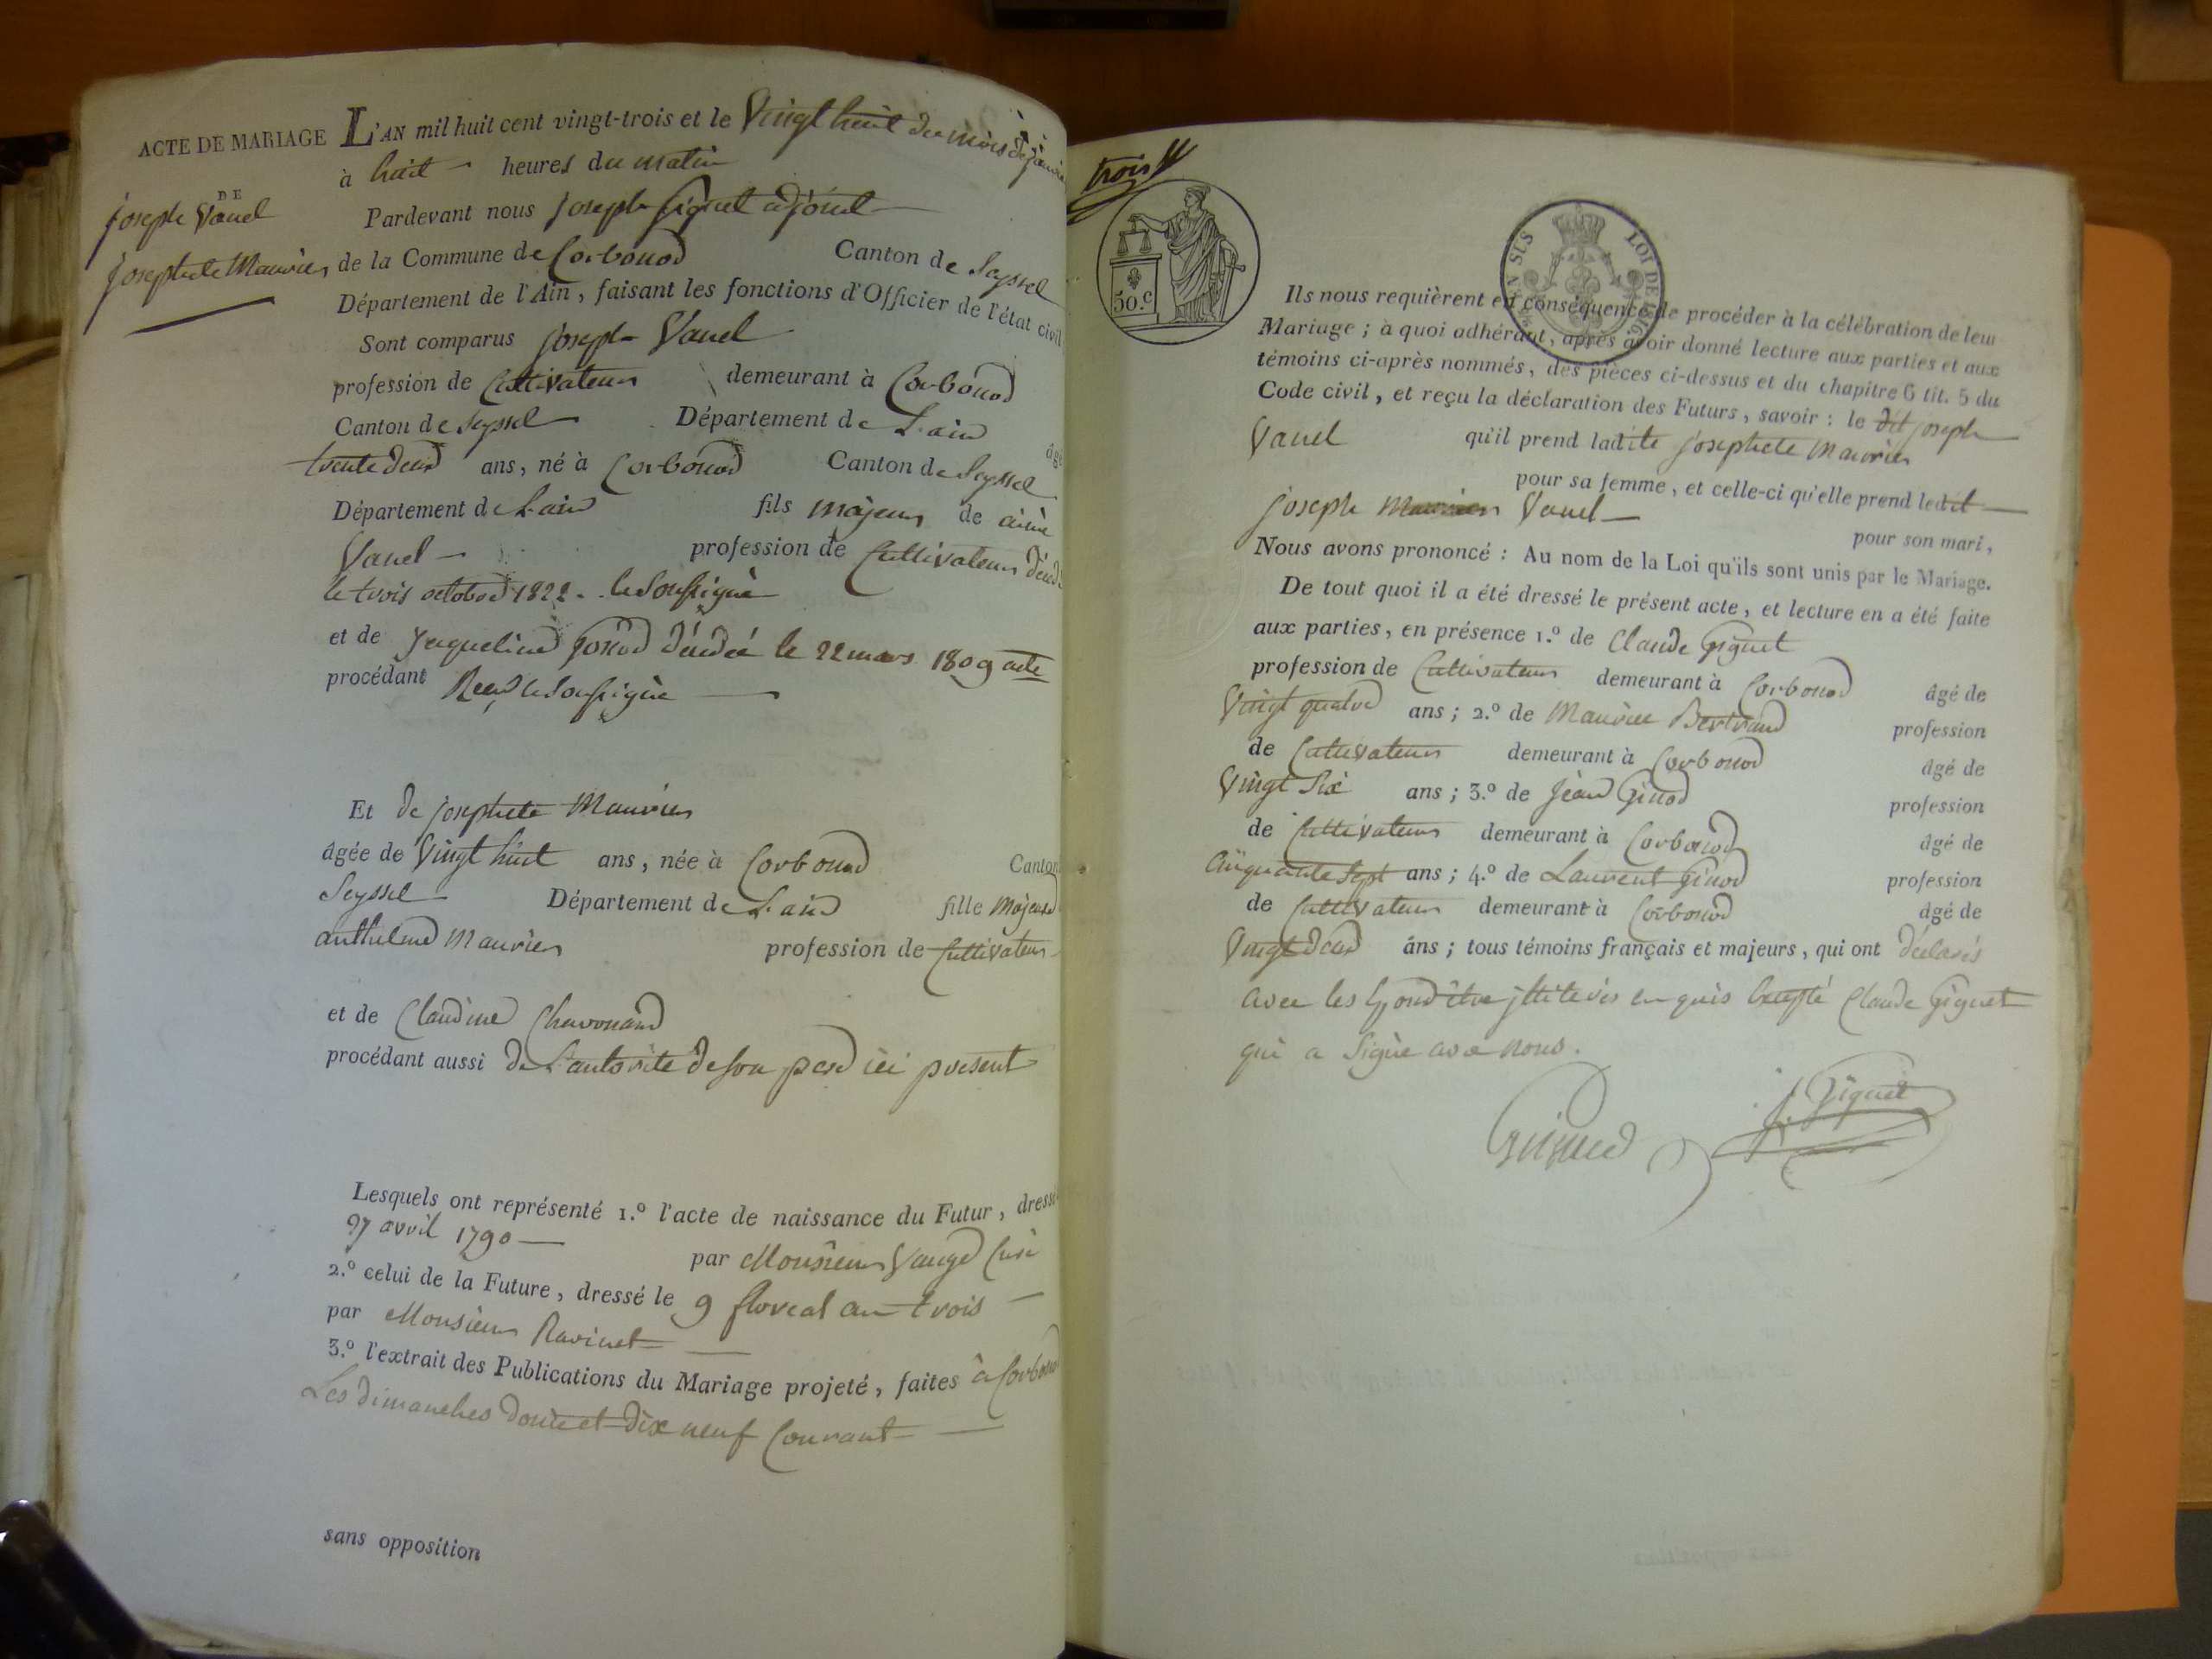 ACTE DE MARIAGE
DE
joseph Vanel
josephete Maurier
L'AN mil huit cent vingt-trois et le Vingt huit du mois de janvier
à huit heures du matin
Pardevant nous joseph Giguet adjoint
de la Commune de Corbonod Canton de Seyssel
Département de l'Ain, faisant les fonctions d'Officier de l'état civil
Sont comparus joseph Vanel
profession de Cultivateur demeurant à Corbonod
Canton de Seyssel Département de L'ain âgé
trente deux ans, né à Corbonod Canton de Seyssel
Département de L'ain fils majeur de aimé
Vanel profession de Cultivateur décédé
le trois octobre 1822. le Soussigné
et de Jaqueline décédée le 22 mars 1809 acte
procédant Reçu le Soussigné
Et de josephete Maurier
âgée de Vingt huit ans, née à Corbonod Canton
Seyssel Département de L'ain fille Majeure
anthelme Maurier profession de Cultivateur
et de Claudine Chavonard
procédant aussi de L'autorité de son pere ici present
Lesquels ont représenté 1.º l'acte de naissance du Futur, dressé
27 avril 1790 par Monsieur Curé
2.º celui de la Future, dressé le 9 floreal an trois
par Monsieur Ravinet
3.º l'extrait des Publications du Mariage projeté, faites à Corbonod
Les dimanches douze et dix neuf Courant
sans opposition
trois
50.c
LOI DE 1816
Ils nous requièrent en conséquence de procéder à la célébration de leur
Mariage; à quoi adhérant, après avoir donné lecture aux parties et aux
témoins ci-après nommés, des pièces ci-dessus et du chapitre 6 tit. 5 du
Code civil, et reçu la déclaration des Futurs, savoir: le dit joseph
Vanel qu'il prend ladite josephete Maurier
pour sa femme, et celle-ci qu'elle prend ledit
joseph Maurier Vanel
pour son mari,
Nous avons prononcé: Au nom de la Loi qu'ils sont unis par le Mariage.
De tout quoi il a été dressé le présent acte, et lecture en a été faite
aux parties, en présence 1.º de Claude Giguet
profession de Cultivateur demeurant à Corbonod âgé de
Vingt quatre ans; 2.º de Maurice Bertrand profession
de Cultivateur demeurant à Corbonod âgé de
Vingt Six ans; 3.º de Jean Ginod profession
de Cultivateur demeurant à Corbonod âgé de
Cinquante Sept ans; 4.º de Laurent Ginod profession
de Cultivateur demeurant à Corbonod âgé de
Vingt Deux ans; tous témoins français et majeurs, qui ont déclarés
avec les Epoux être jlliterés enquis Excepté Claude Giguet
qui a Signé avec nous.
Giguet J. Giguet